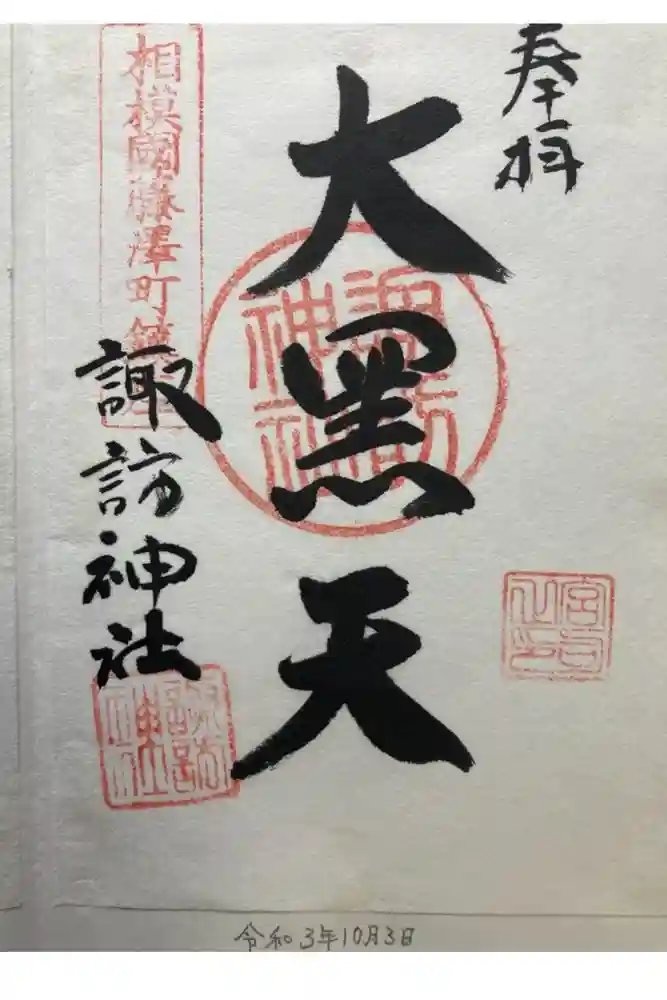 奉拝
大黒天
諏訪神社
相模國藤澤町鎮座
諏訪神社
宮司之印
諏訪神社
令和3年10月3日